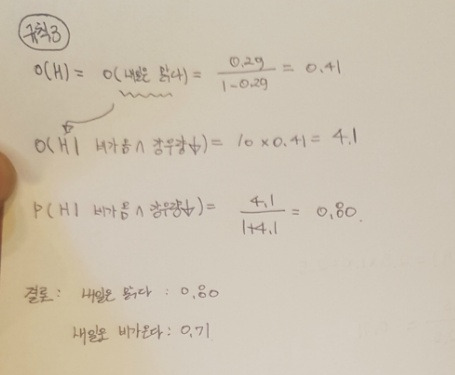 규칙3
O(H) = O(내일은 맑다) = 0.29 / 1-0.29 = 0.41
O(H| 비가옴 ∧ 강우량↓) = 10 × 0.41 = 4.1
P(H| 비가옴 ∧ 강우량↓) = 4.1 / 1+4.1 = 0.80.
결론: 내일은 맑다 : 0.80
내일은 비가온다 : 0.71